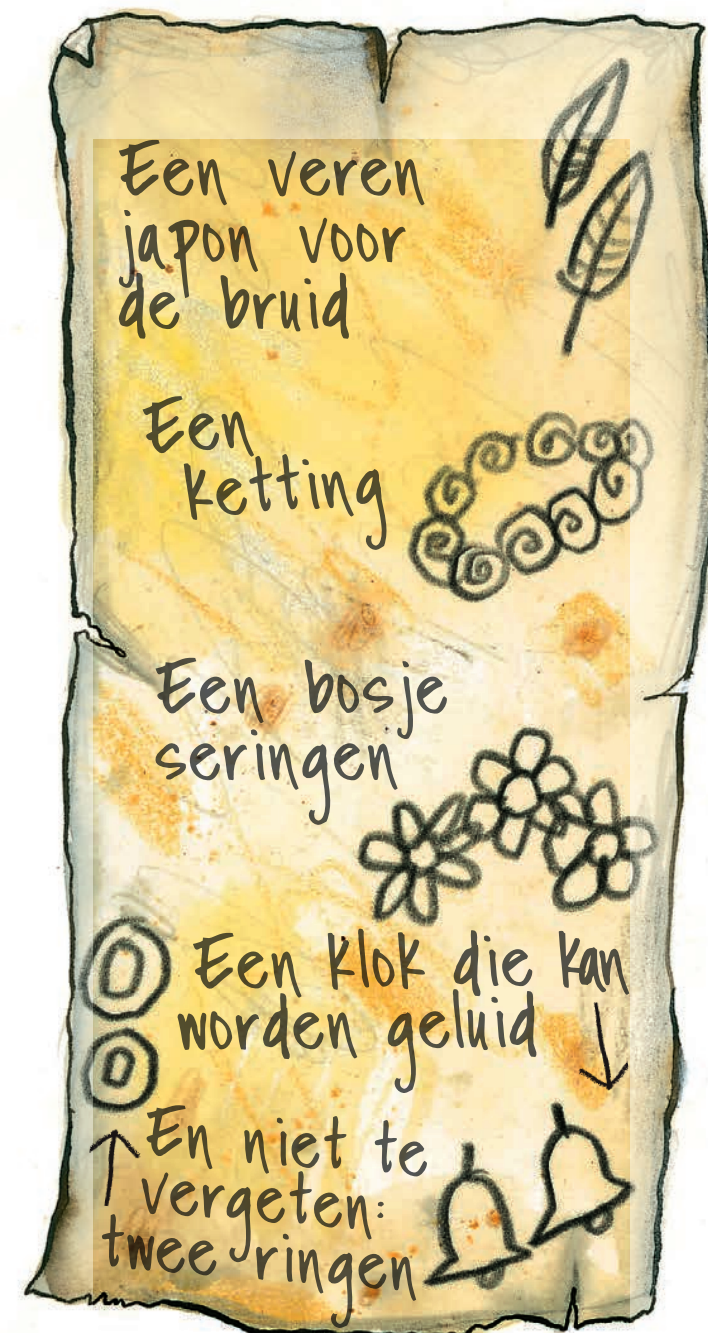 Een veren
japon voor
de bruid
Een
ketting
Een bosje
seringen
Een klok die kan
worden geluid
En niet te
vergeten:
twee ringen